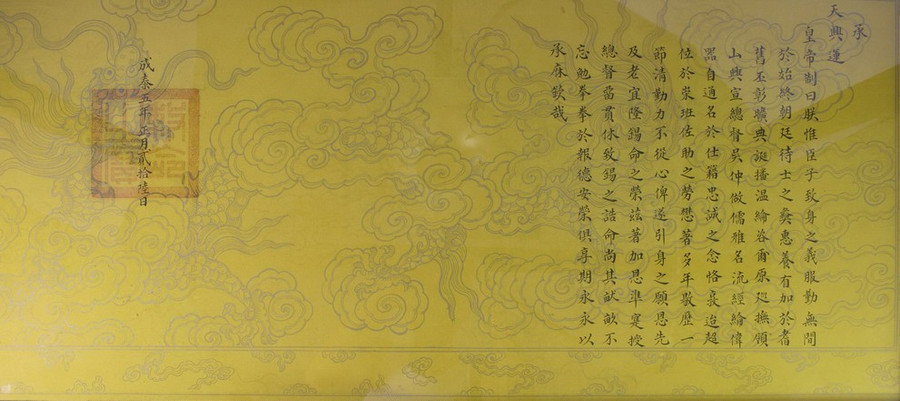 承
天興運
皇帝制曰朕惟臣子致身之義服勤無間
於始終朝廷待士之彝惠養有加於耆
舊丕彰曠典誕播溫綸咨爾原廵撫領
山興宣總督吳仲做儒雅名流經綸偉
器自通名於仕籍忠誠之念恪迨超
位於崇班佐助之勞懋著多年敭歷一
節清勤力不從心俾遂引身之願恩先
及老宜隆錫命之榮茲著加恩準寔授
總督貫休致錫之誥命尚其畝不
忘勉拳拳於報德安榮俱享期永永以
承庥欽哉
成泰五年正月貳拾陸日